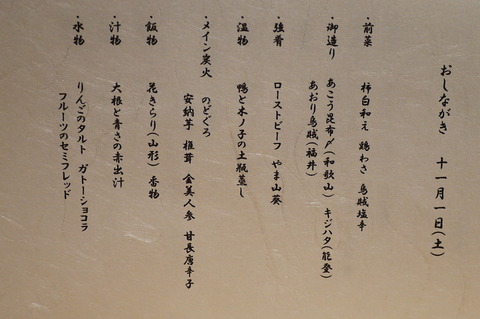 おしながき 十一月一日(土)
・前菜 柿白和え 鶏わさ 烏賊塩辛
・御造り あこう昆布〆(和歌山) キジハタ(能登)
あおり烏賊(福井)
・強肴 ローストビーフ やま山葵
・温物 鴨と木ノ子の土瓶蒸し
・メイン炭火 のどぐろ
安納芋 椎茸 金美人参 甘長唐辛子
・飯物 花きらり(山形) 香物
・汁物 大根と青さの赤出汁
・水物 りんごのタルト ガトーショコラ
フルーツのセミフレッド